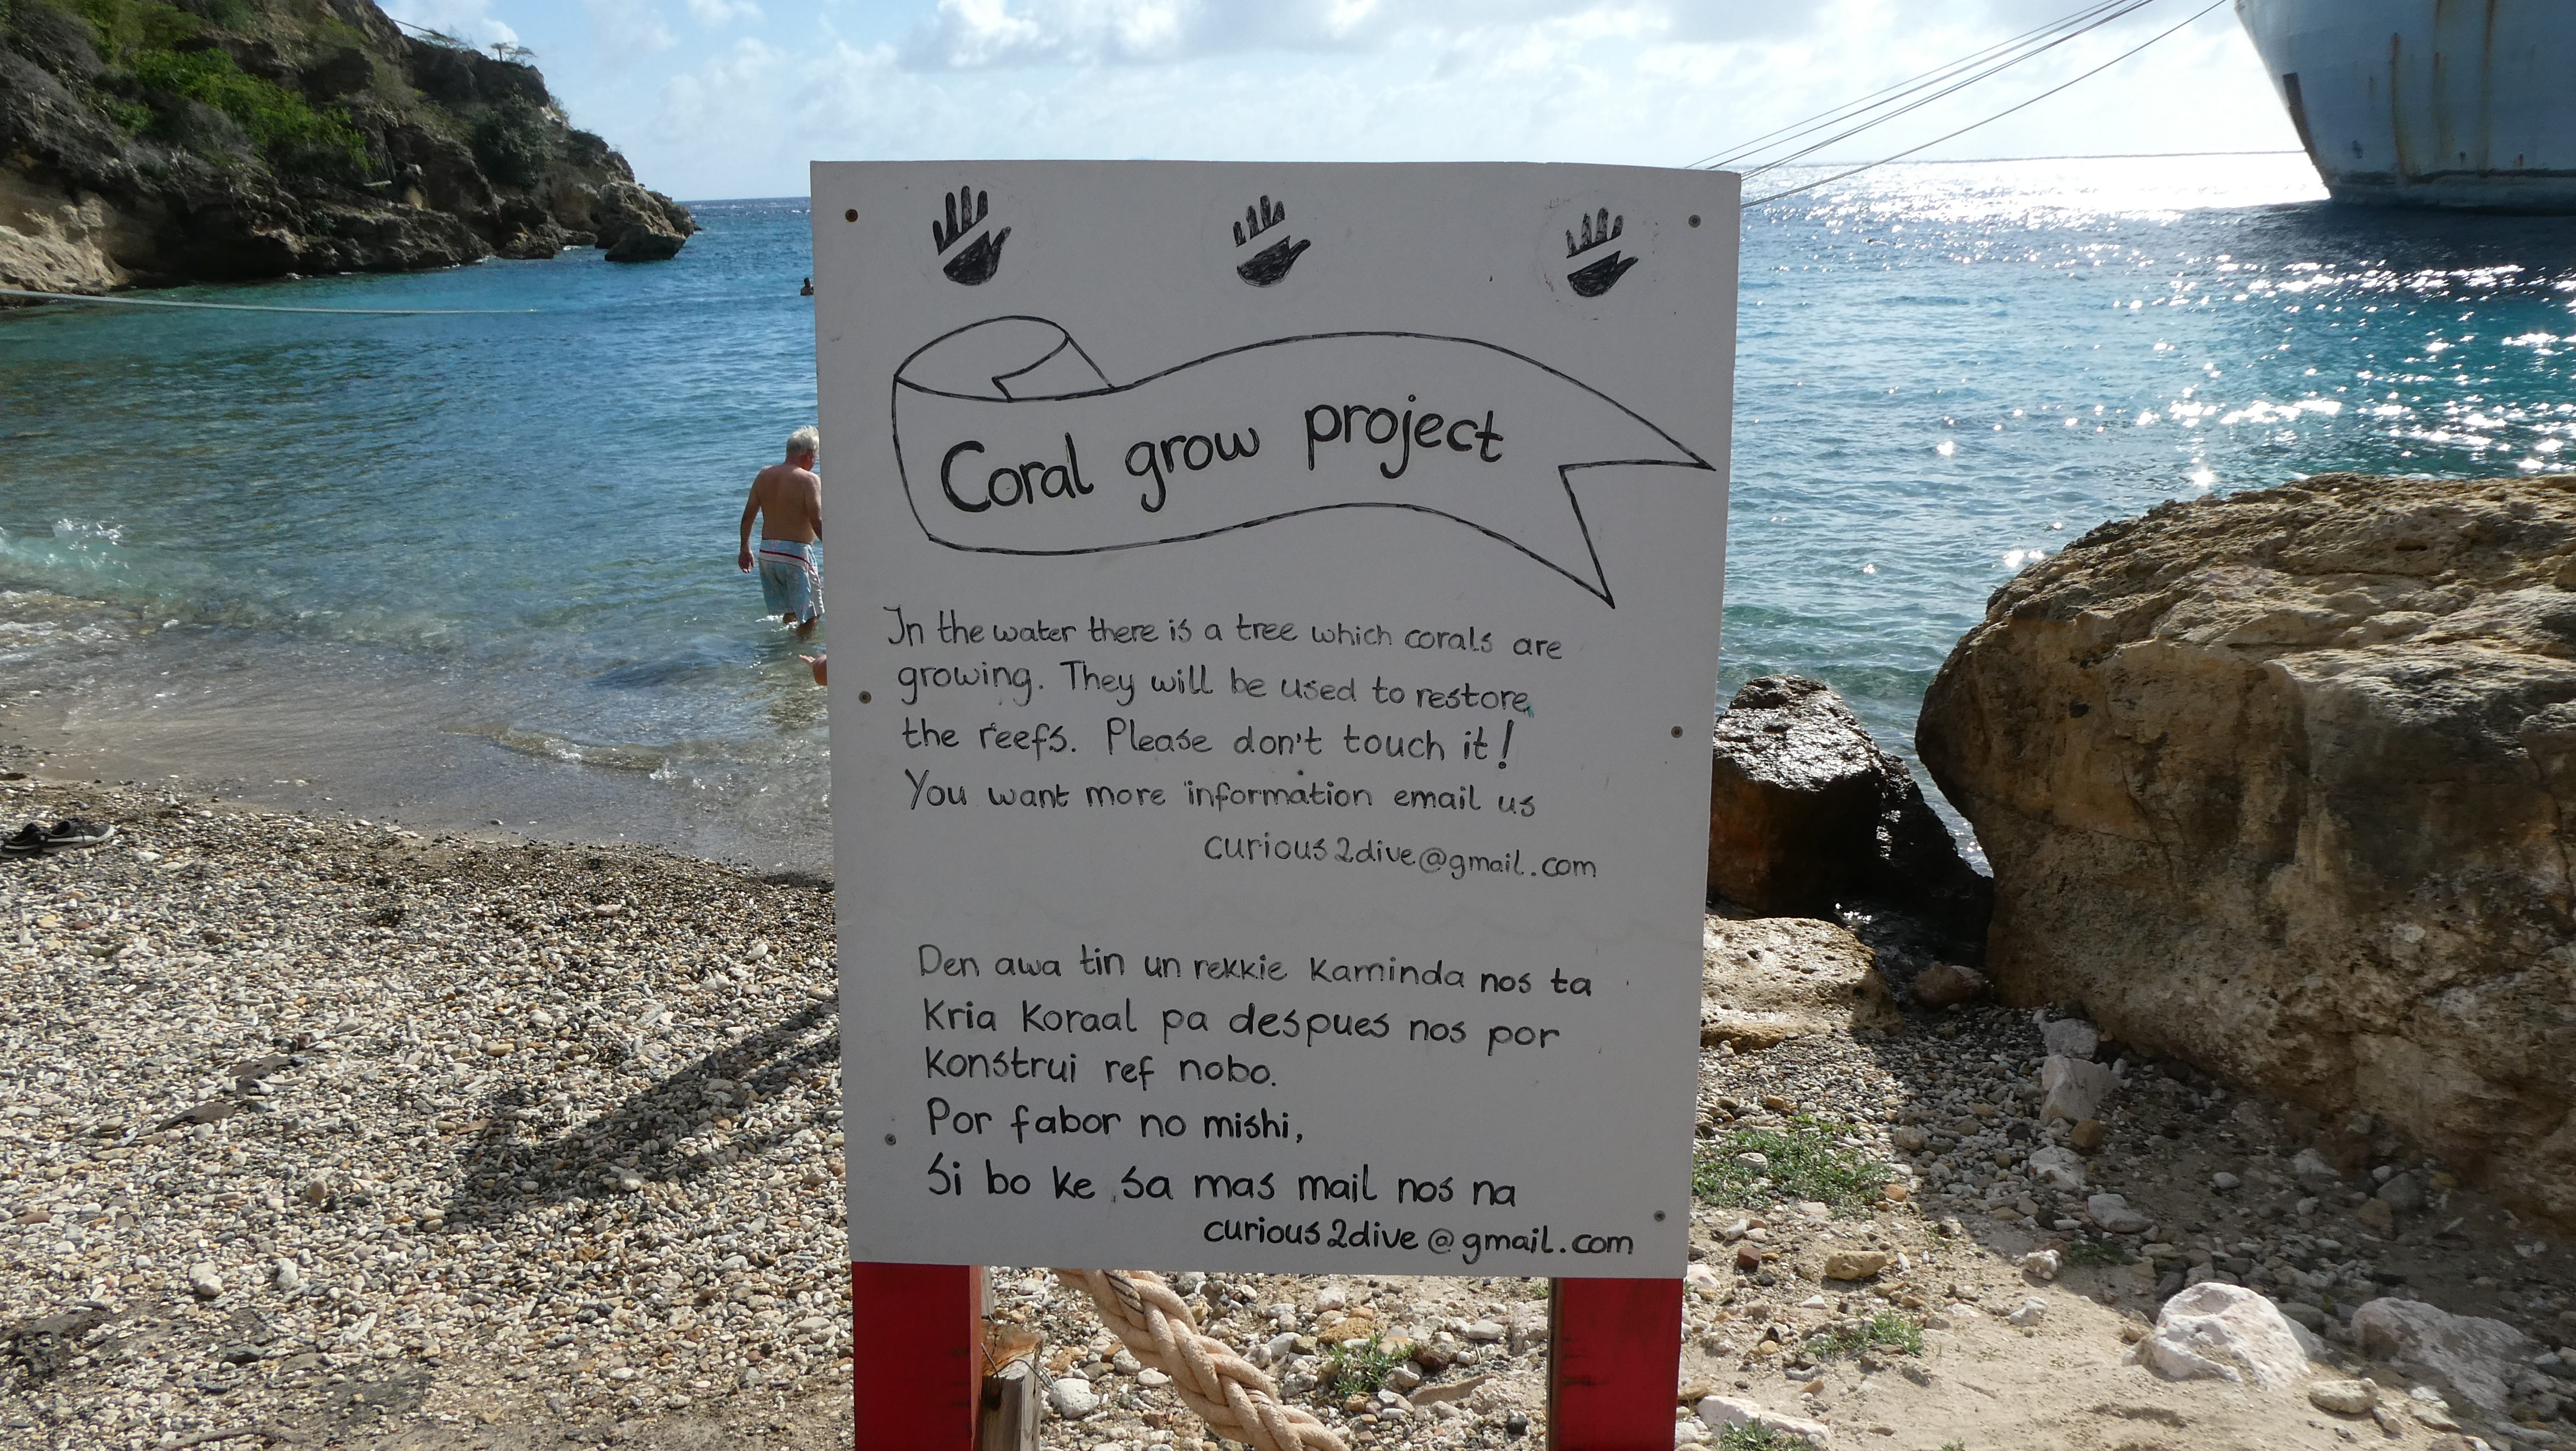 Coral grow project
In the water there is a tree which corals are
growing. They will be used to restore
the reefs. Please don't touch it!
You want more information email us
curious2dive@gmail.com
Den awa tin un rekkie kaminda nos ta
Kria Koraal pa despues nos por
Konstrui ref nobo.
Por fabor no mishi,
Si bo ke sa mas mail nos na
curious2dive@gmail.com